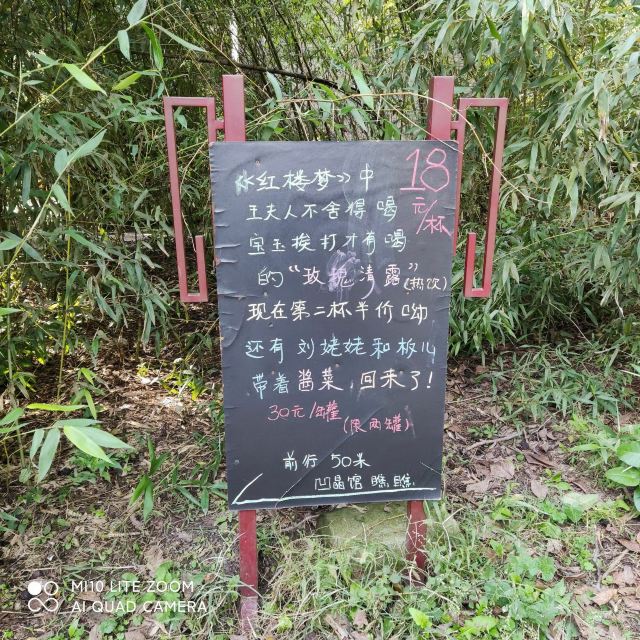 《红楼梦》中
18元/杯
王夫人不舍得喝
宝玉挨打才有喝
的“玫瑰清露”(热饮)
现在第二杯半价呦
还有刘姥姥和板儿
带着酱菜,回来了!
30元/罐
(限两罐)
前行50米
凹晶馆 瞧瞧
MI10 LITE ZOOM
AI QUAD CAMERA